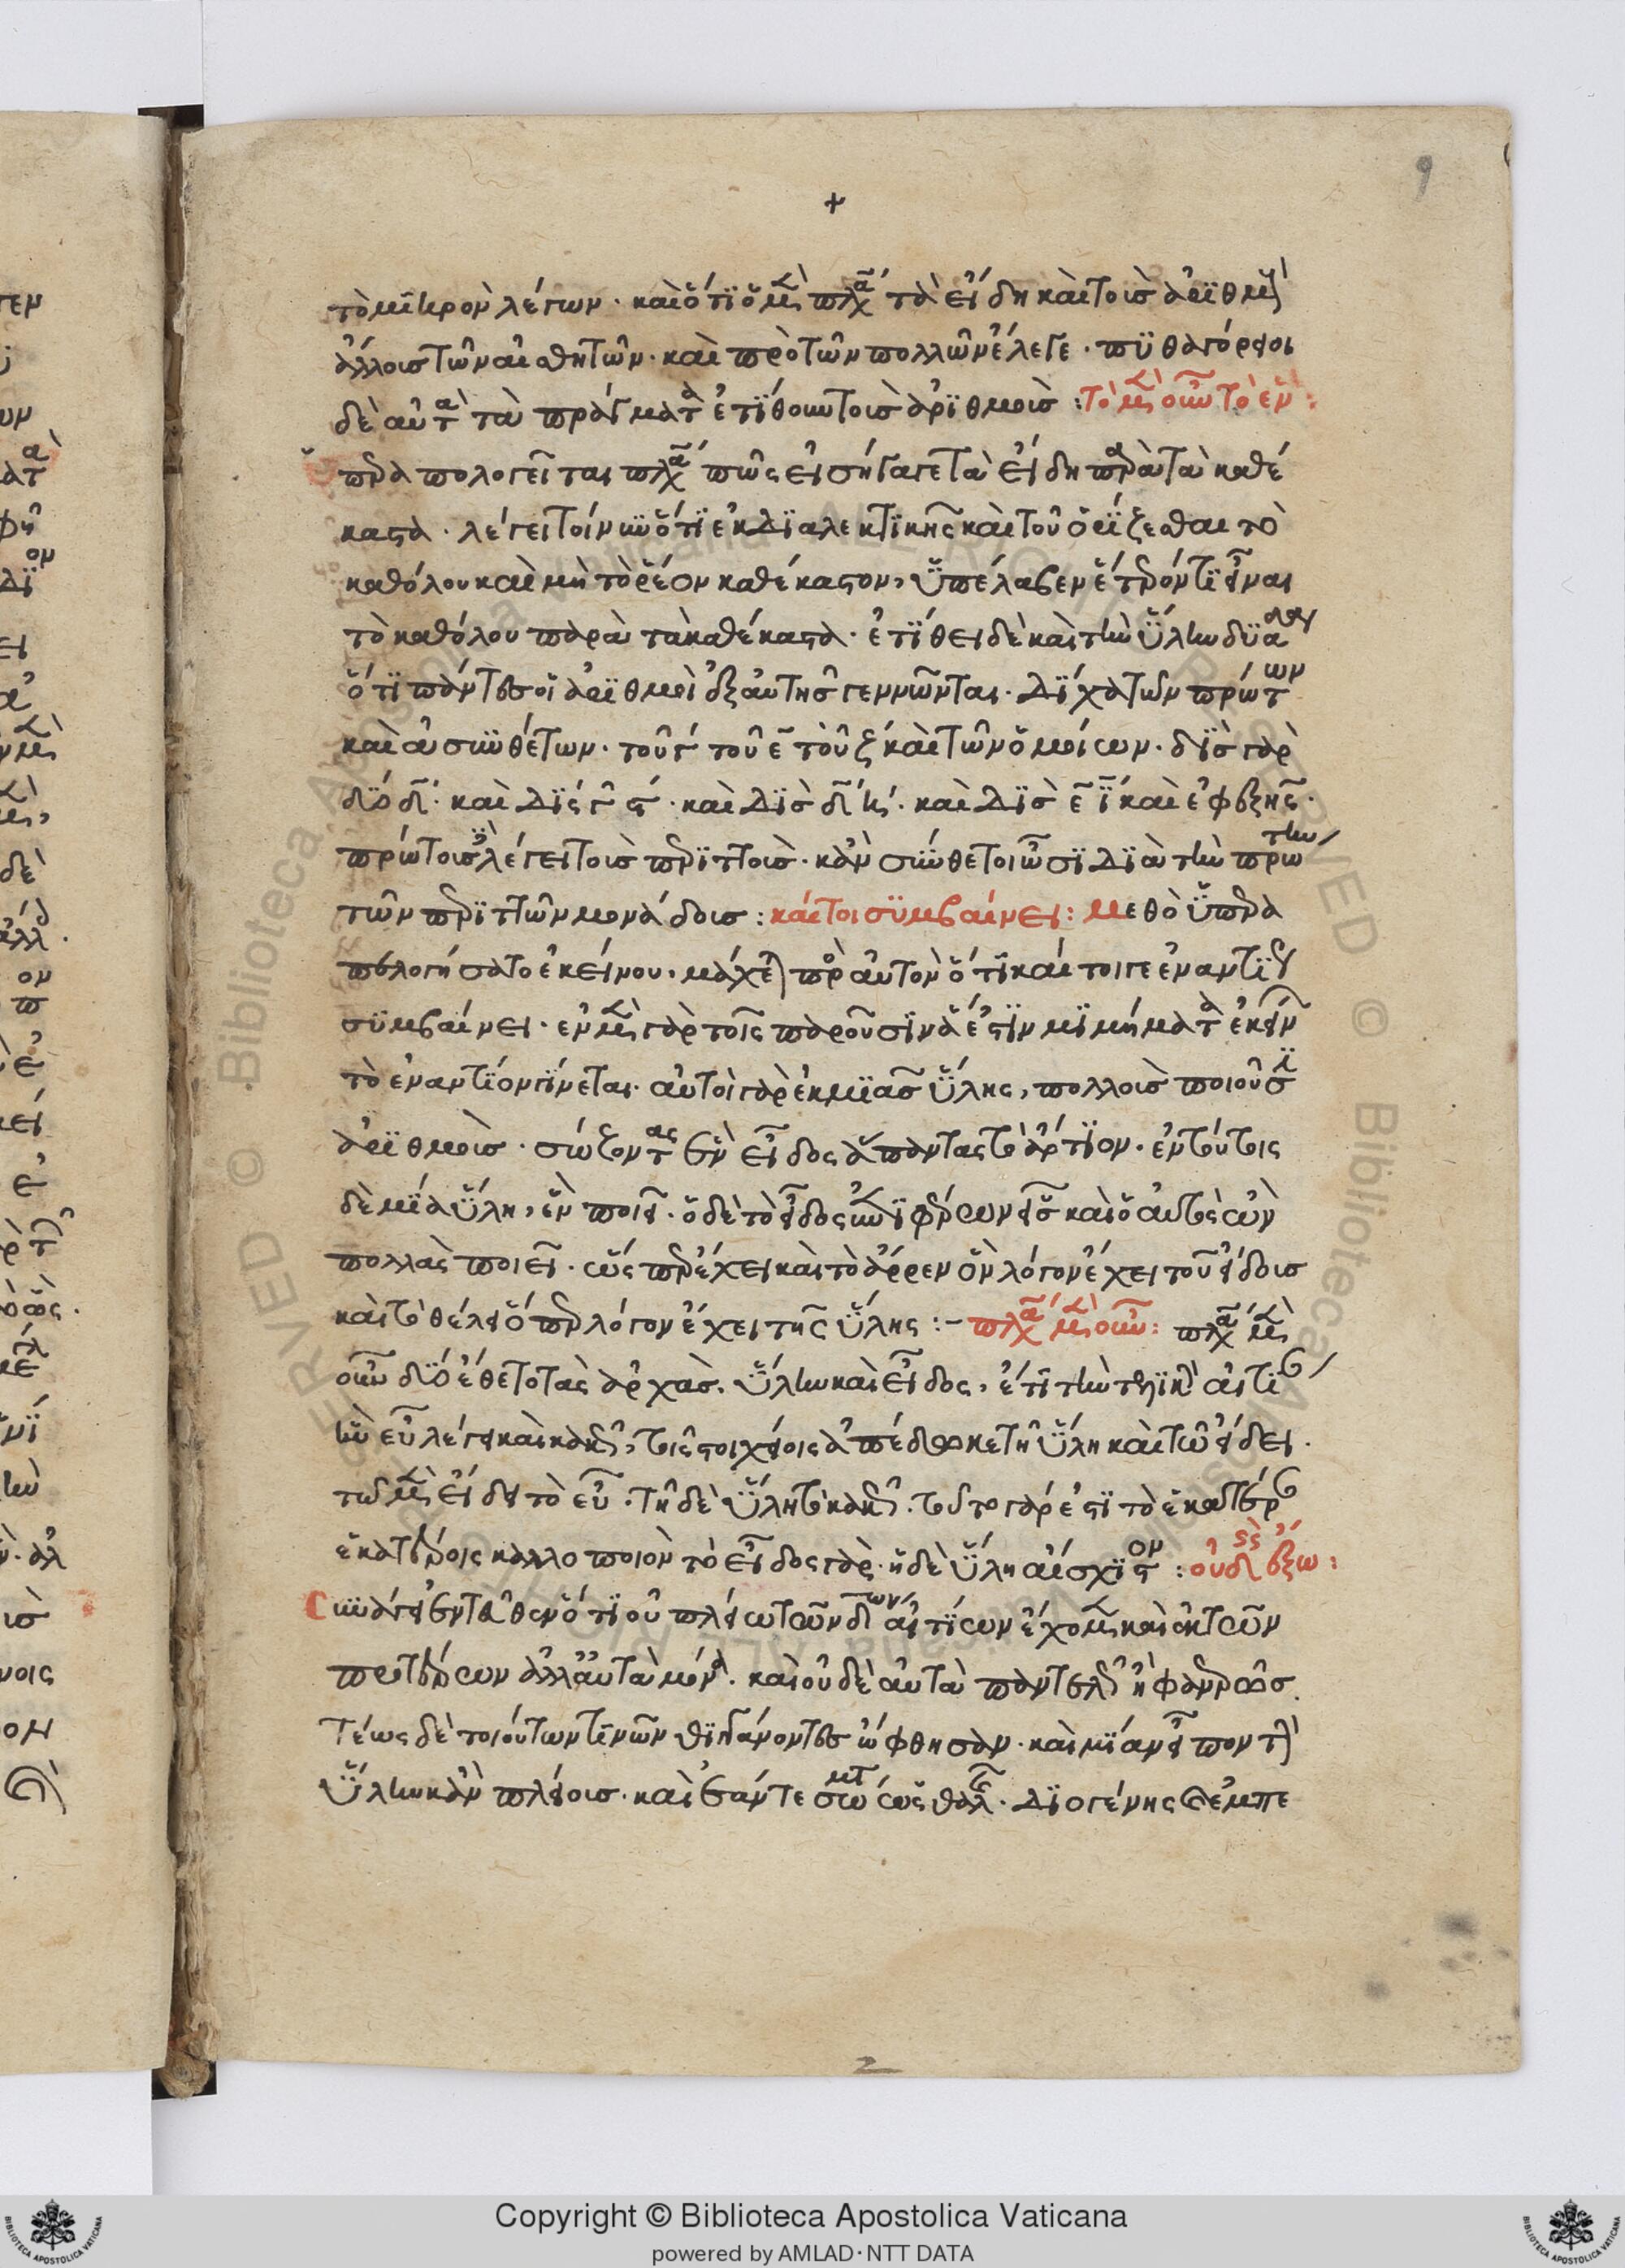 9
+
τὸ μικρὸν λέγων · καὶ ὅτι ὁ μὲν πλάτων τὰ εἴδη καὶ τοὺς ἀριθμοὺς
ἄλλους τῶν αἰσθητῶν · καὶ πρὸ τῶν πολλῶν ἔλεγε · πυθαγόρειοι
δὲ αὐτὰ τὰ πράγματα ἐτίθουν τοὺς ἀριθμούς : τὸ μὲν οὖν τὸ ἓν :
ἀπολογεῖται πλάτων πῶς εἰσήγαγε τὰ εἴδη παρὰ τὰ καθέ
καστα · λέγει τοίνυν ὅτι ἐκ διαλεκτικῆς καὶ τοῦ ὁρίζεσθαι τὸ
καθόλου καὶ μὴ τὸ ῥέον καθέκαστον, ὑπέλαβεν ἕτερόν τι εἶναι
τὸ καθόλου παρὰ τὰ καθέκαστα · ἐτίθει δὲ καὶ τὴν ὕλην δυάδα
ὅτι πάντες οἱ ἀριθμοὶ ἐξ αὐτῆς γεννῶνται · δίχα τῶν πρώτων
καὶ ἀσυνθέτων · τοῦ γ τοῦ ε τοῦ ζ καὶ τῶν ὁμοίων · δὶς γὰρ
δύο δ · καὶ δὶς γ ϛ · καὶ δὶς δ η · καὶ δὶς ε ι καὶ ἐφεξῆς ·
πρώτους λέγει τοὺς περιττούς · κἂν σύνθετοι ὦσι διὰ τὴν πρώτην
τῶν περιττῶν μονάδος : καίτοι συμβαίνει : μεθὸ ὑπερα
πελογήσατο ἐκείνου · μάχεται πρὸς αὐτὸν ὅτι καί τοι γε ἐναντίως
συμβαίνει · ἐν μὲν γὰρ τοῖς παροῦσιν ἅ ἐστιν μιμήματα ἐκείνων
τὸ ἐναντίον γίνεται · αὐτοὶ γὰρ ἐκ μιᾶς ὕλης, πολλοὺς ποιοῦσι
ἀριθμούς · σώζοντας ἓν εἶδος ἅπαντας τὸ ἄρτιον · ἐν τούτοις
δὲ μία ὕλη, ἓν ποιεῖ · ὁ δὲ τὸ εἶδος ἐπιφέρων εἷς καὶ ὁ αὐτὸς ὢν
πολλὰς ποιεῖ · ὥσπερ ἔχει καὶ τὸ ἄρρεν ὃν λόγον ἔχει τοῦ εἴδους
καὶ τὸ θῆλυ ὅπερ λόγον ἔχει τῆς ὕλης :– πλάτων μὲν οὖν : πλάτων μὲν
οὖν δύο ἔθετο τὰς ἀρχὰς, ὕλην καὶ εἶδος, ἔτι τὴν τελικὴν αἰτίαν
ἣν εὖ λέγει καὶ κακῶς, τοῖς στοιχείοις ἀπέδωκε τῇ ὕλῃ καὶ τῷ εἴδει ·
τῷ μὲν εἴδει τὸ εὖ · τῇ δὲ ὕλῃ τὸ κακῶς · τοῦτο γάρ ἐστι τὸ ἑκατέραν
ἑκατέροις καλλοποιὸν τὸ εἶδος γάρ · ἡ δὲ ὕλη αἴσχιστον : οὐδεὶς ἔξω :
συνάγει ἐντεῦθεν ὅτι οὐ πλείω τῶν δ αἰτίων ἔχομεν καὶ ἐκ τῶν
προτέρων ἀλλ' αὐτὰ μόνα · καὶ οὐδὲ αὐτὰ παντελῶς ἢ φανερῶς ·
τέως δὲ τοιούτων τινῶν θιγγάνοντες ὤφθησαν · καὶ μίαν εἶπόν τινες
ὕλην κἂν πλείους · καὶ ἐάν τε σῶμα ὡς θαλῆς · διογένης ἐμπε
2
Copyright © Biblioteca Apostolica Vaticana
powered by AMLAD·NTT DATA